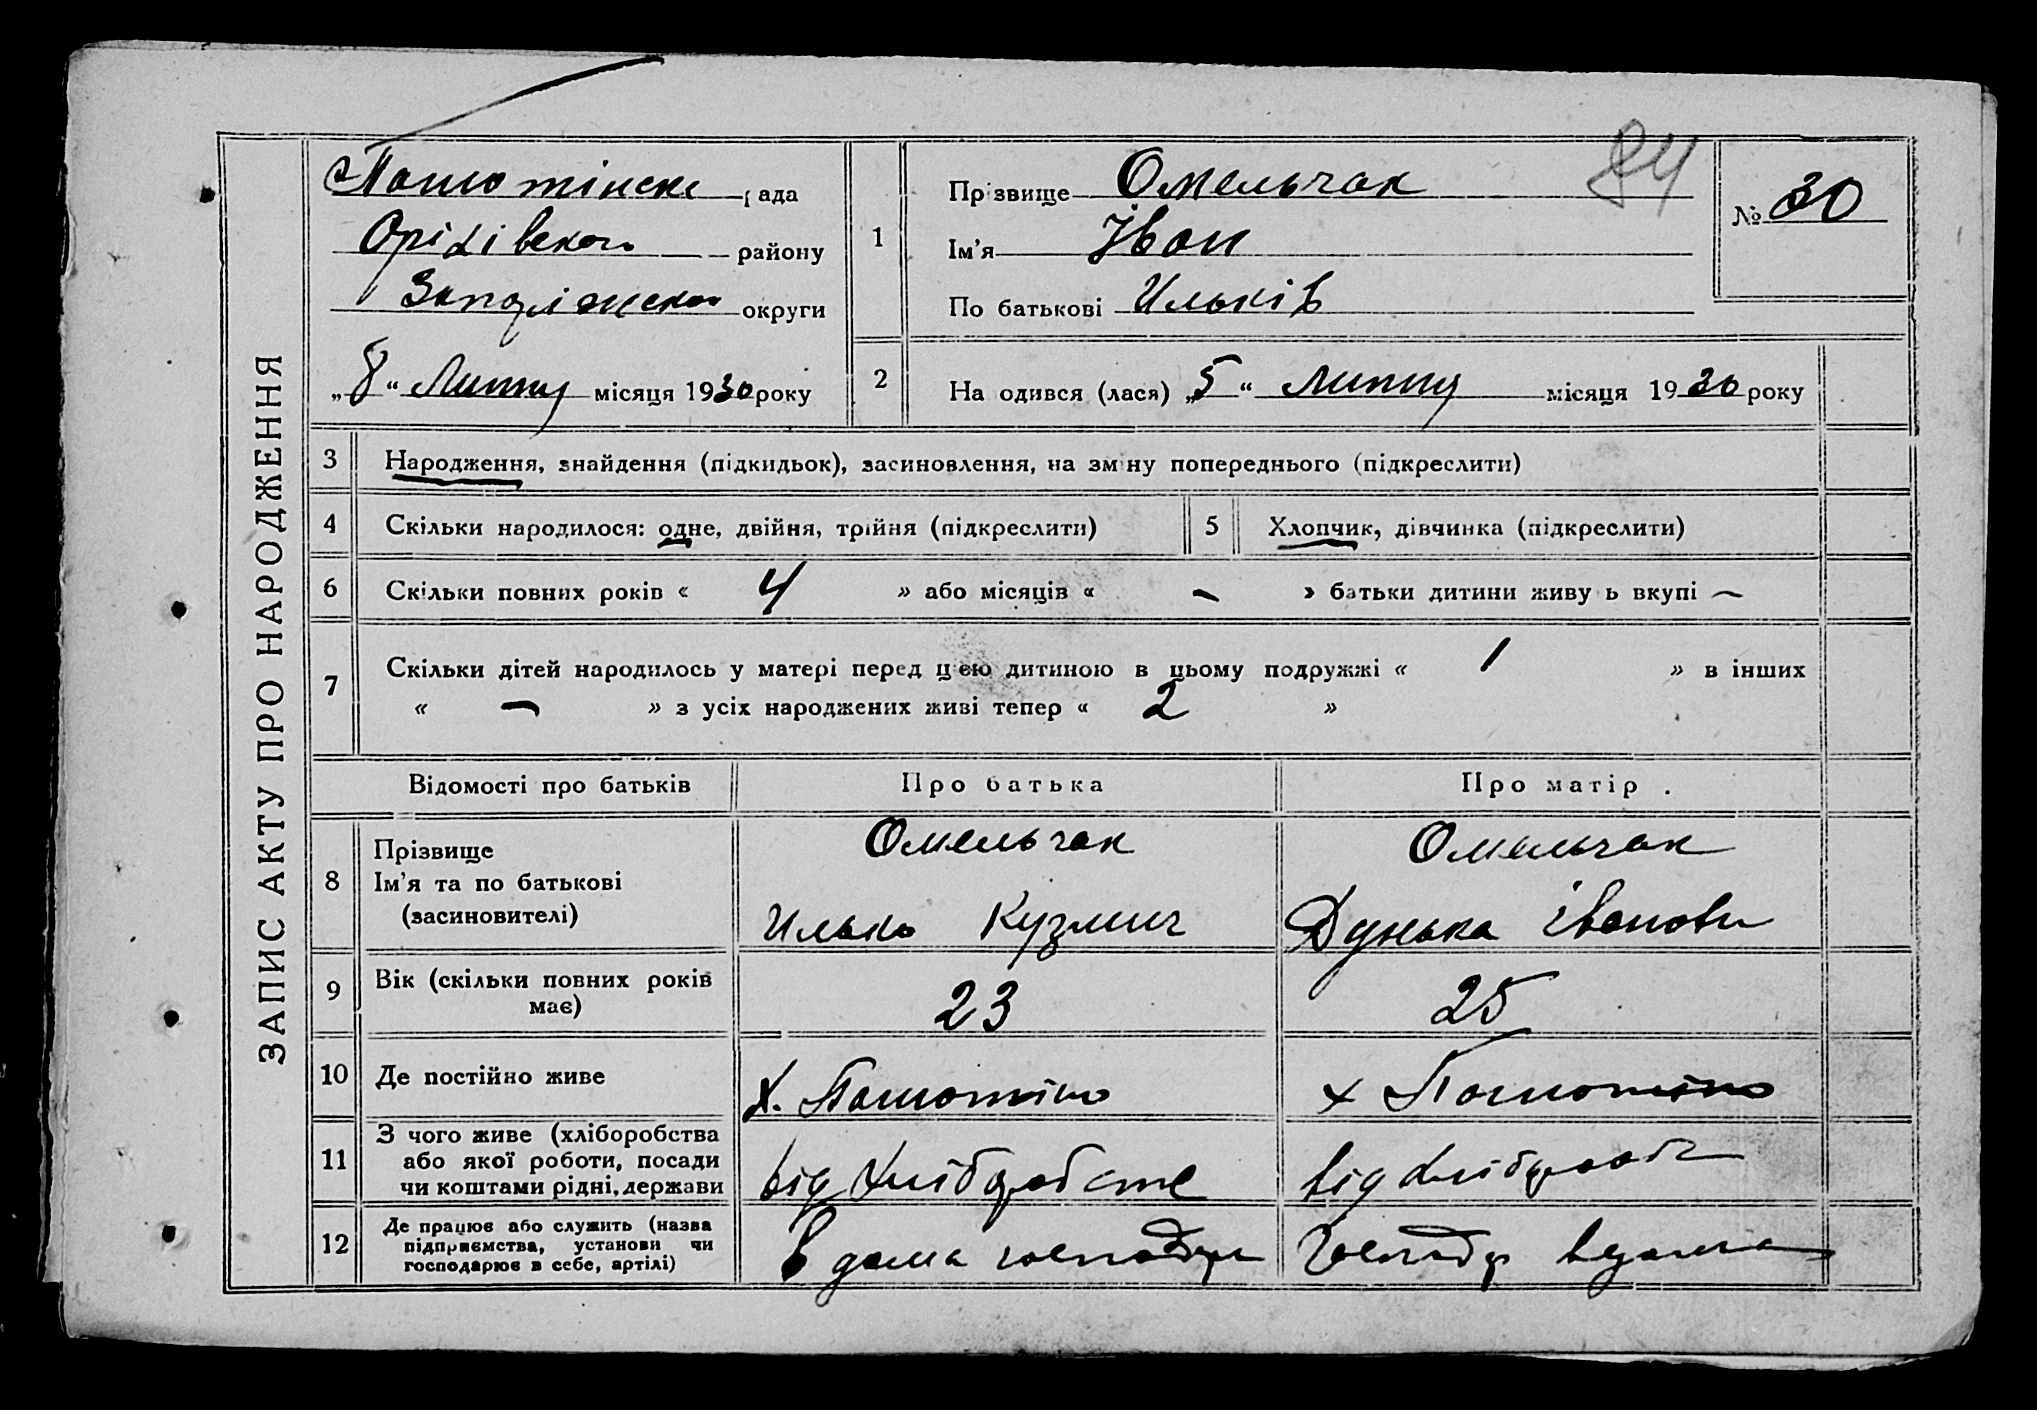 84
ЗАПИС АКТУ ПРО НАРОДЖЕННЯ
рада
Оріхівского району
Запоріжскої округи
„8“ Липня місяця 1930 року
1
Прізвище Омельчак
Ім'я Івон
По батькові Ильків
№ 30
2
На одився (лася) „5“ Липня місяця 1930 року
3 Народження, знайдення (підкидьок), засиновлення, на зміну попереднього (підкреслити)
4 Скільки народилося: одне, двійня, трійня (підкреслити)
5 Хлопчик, дівчинка (підкреслити)
6 Скільки повних років « 4 » або місяців « — » батьки дитини живу ь вкупі —
7 Скільки дітей народилось у матері перед цією дитиною в цьому подружжі « 1 » в інших
« — » з усіх народжених живі тепер « 2 »
Відомості про батьків Про батька Про матір.
8 Прізвище
Ім'я та по батькові
(засиновителі)
Омельчак
Илько Кузмич
Омельчак
Дунька Івановн
9 Вік (скільки повних років
має)
23
25
10 Де постійно живе
х.
х
11 З чого живе (хліборобства
або якої роботи, посади
чи коштами рідні, держави
від хліборобств
від хлібороб
12 Де працює або служить (назва
підприємства, установи чи
господарює в себе, артілі)
в дома господар
Господар вдома